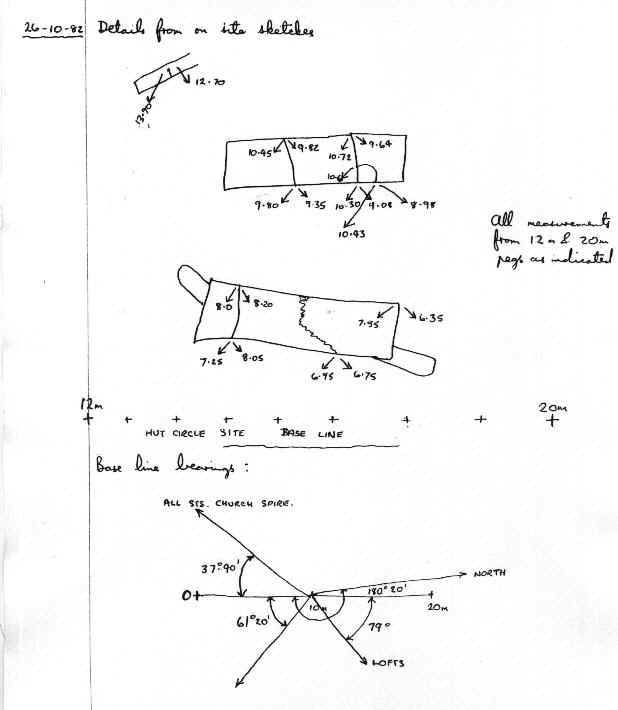 26-10-82 Details from on site sketches
12.70
13.90
10.45 9.82 10.72 9.64
9.80 9.35 10.30 9.08 8.98
10.43
All measurements
from 12m & 20m
pegs as indicated
8.0 8.20 7.95 6.35
7.25 8.05 6.95 6.75
12m 20m
HUT CIRCLE SITE BASE LINE
Base line bearings :
ALL STS. CHURCH SPIRE.
37°90'
NORTH
180°20'
0 10m 20m
61°20' 79°
LOFTS